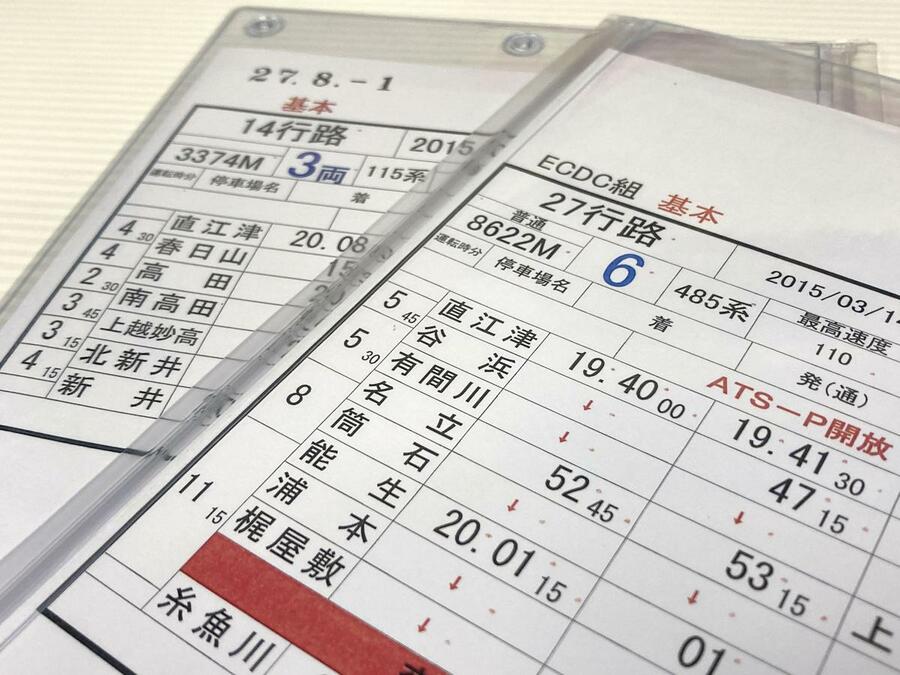 27. 8. -1
基本
14行路
2015
3374M 3両 115系
運転時分 停車場名 着
4 30 直江津 20. 08
4 春日山 15
2 30 高田
3 45 南高田
3 15 上越妙高
4 15 北新井
新井
ECDC組 基本
27行路
2015/03/14
普通
8622M 6 485系 最高速度
110
運転時分 停車場名 着 発(通)
ATS-P開放
5 45 直江津 19. 40 00 19. 41 30
5 30 谷浜 ↓ 47 15
有間川 ↓ ↓
8 名立 52 45 53 15
筒石 ↓ ↓
能生 20. 01 15 01
11 15 浦本 ↓
梶屋敷 ↓
糸魚川
上